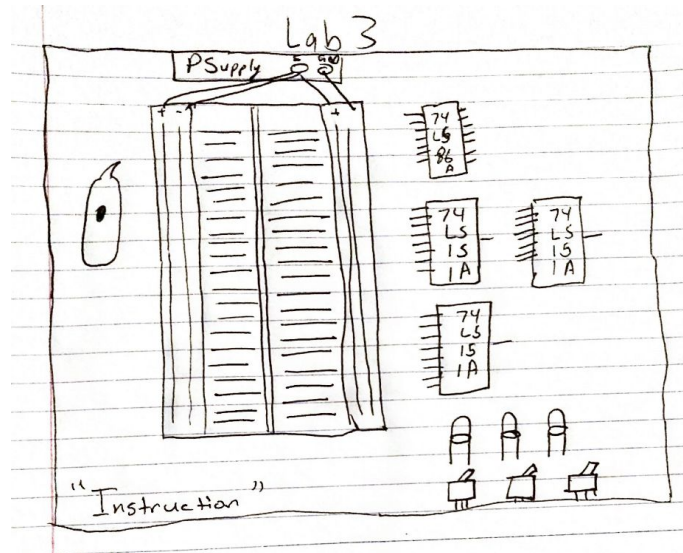 Lab 3
PSupply
+ -
+
74
LS
86
A
74
LS
15
1A
74
LS
15
1A
74
LS
15
1A
"Instruction"